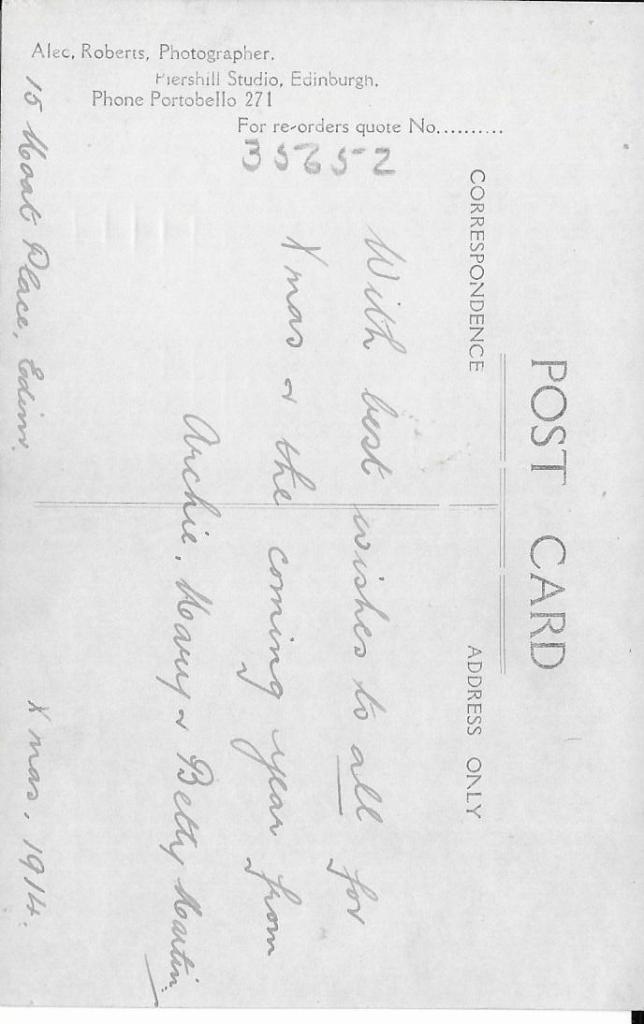 Alec, Roberts, Photographer.
Piershill Studio, Edinburgh.
Phone Portobello 271
For re-orders quote No..........
35652
POST CARD
CORRESPONDENCE
ADDRESS ONLY
With best wishes to all for
Xmas & the coming year from
Archie, Mary & Betty Martin.
15 Moat Place, Edin.
Xmas, 1914.